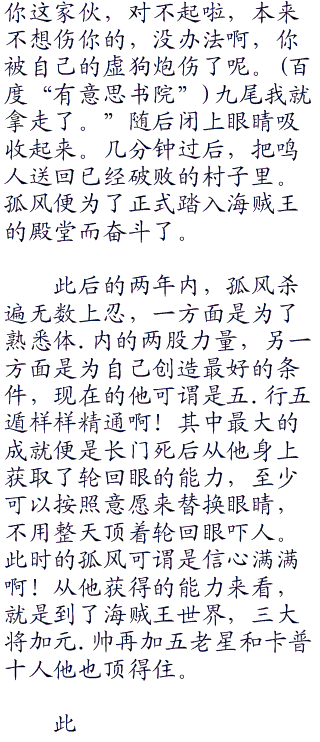 你这家伙，对不起啦，本来
不想伤你的，没办法啊，你
被自己的虚狗炮伤了呢。(百
度“有意思书院”)九尾我就
拿走了。”随后闭上眼睛吸
收起来。几分钟过后，把鸣
人送回已经破败的村子里。
孤风便为了正式踏入海贼王
的殿堂而奋斗了。
此后的两年内，孤风杀
遍无数上忍，一方面是为了
熟悉体.内的两股力量，另一
方面是为自己创造最好的条
件，现在的他可谓是五.行五
遁样样精通啊！其中最大的
成就便是长门死后从他身上
获取了轮回眼的能力，至少
可以按照意愿来替换眼睛，
不用整天顶着轮回眼吓人。
此时的孤风可谓是信心满满
啊！从他获得的能力来看，
就是到了海贼王世界，三大
将加元.帅再加五老星和卡普
十人他也顶得住。
此